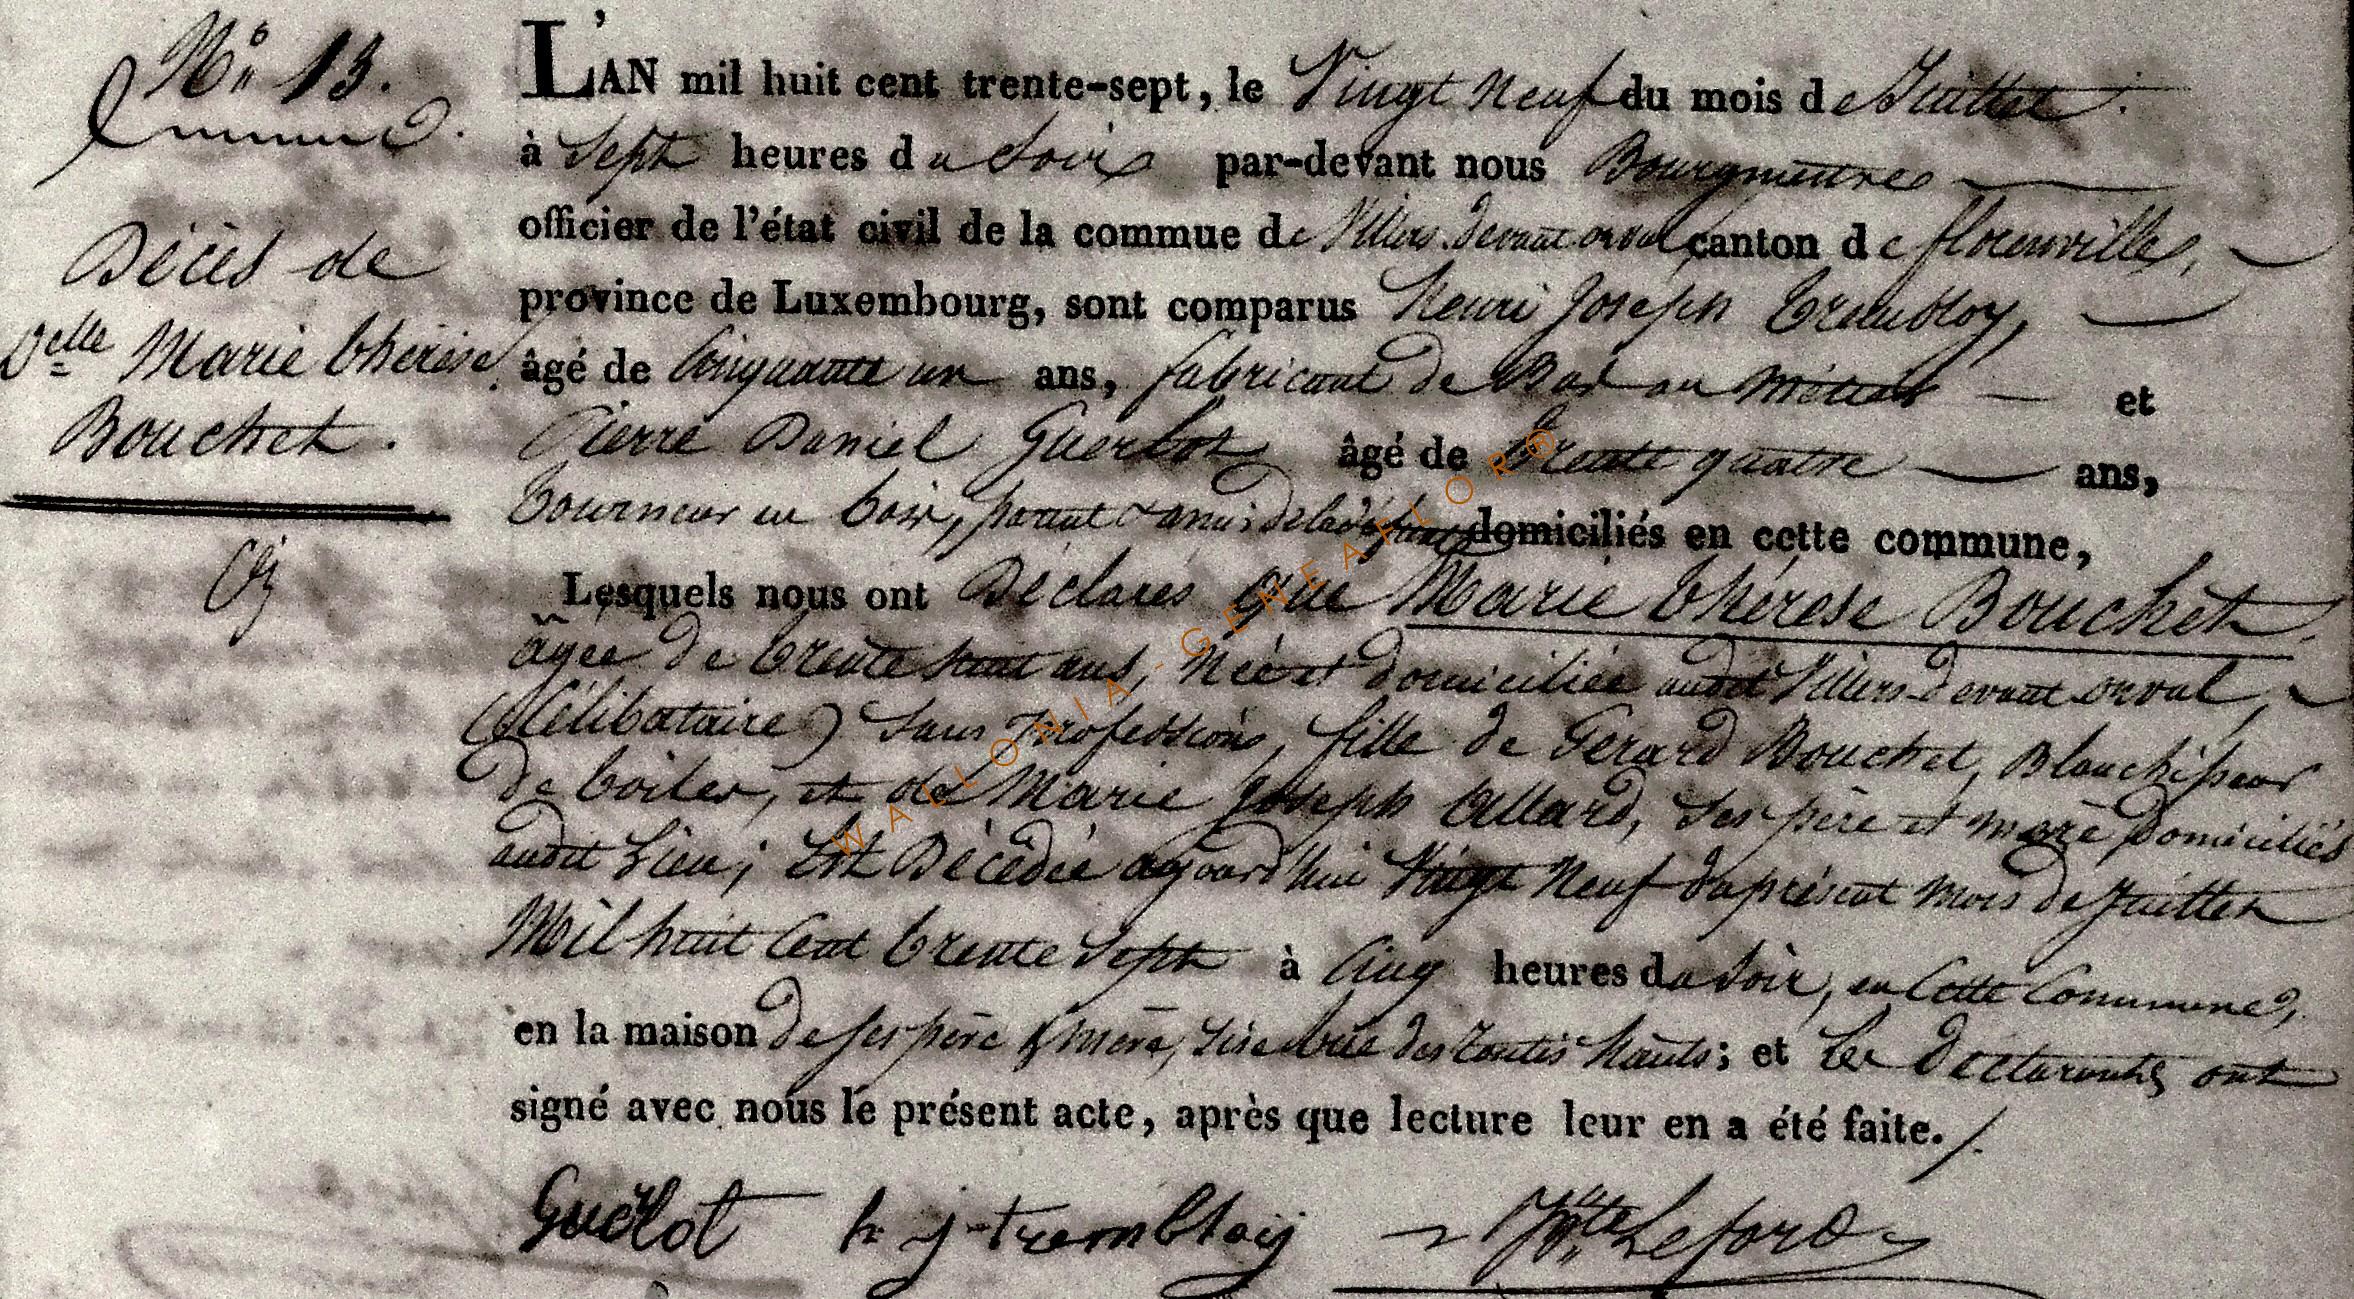 No 13.
Décès de
Delle Marie thérèse
Bouchet.
L'AN mil huit cent trente-sept, le Vingt Neuf du mois de Juillet.
à Sept heures du Soir par-devant nous Bourgmettre
officier de l'état civil de la commue de Villers devant orval canton de florenville,
province de Luxembourg, sont comparus henri Joseph trembloy,
âgé de Cinquante un ans, fabricant de Bas au Métier et
Pierre Daniel Guerlot âgé de trente quatre ans,
tourneur en bois, parent & amis de la défunte domiciliés en cette commune,
Lesquels nous ont Déclarés que Marie thérèse Bouchet.
âgée de trente huit ans, née et domiciliée audit Villers devant orval,
(Célibataire) Sans Profession, fille de Gerard Bouchet, Blanchisseur
de toiles, et de Marie Joseph Allard, ses père et mère Domiciliés
audit Lieu; Est Décédée aujourd'hui Vingt Neuf du présent mois de Juillet
Mil huit Cent trente Sept à Cinq heures du Soir, en Cette Commune,
en la maison de ses père & mère, Sise rue des hauts; et les declarants ont
signé avec nous le présent acte, après que lecture leur en a été faite./.
Guerlot h j trembloy Leford
WALLONIA-GENEAFLOR®